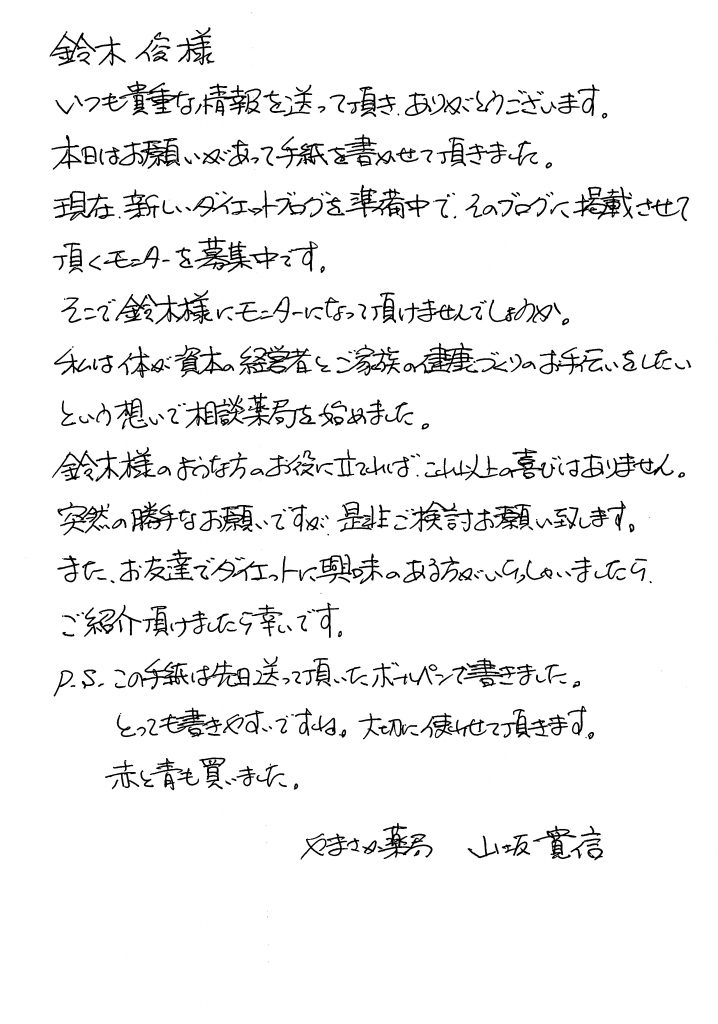 鈴木 俊様
いつも貴重な情報を送って頂き、ありがとうございます。
本日はお願いがあって手紙を書かせて頂きました。
現在、新しいダイエットブログを準備中で、そのブログに掲載させて
頂くモニターを募集中です。
そこで鈴木様にモニターになって頂けませんでしょうか。
私は体が資本の経営者とご家族の健康づくりのお手伝いをしたい
という想いで相談薬局を始めました。
鈴木様のような方のお役に立てれば、これ以上の喜びはありません。
突然の勝手なお願いですが、是非ご検討お願い致します。
また、お友達でダイエットに興味のある方がいらっしゃいましたら、
ご紹介頂けましたら幸いです。
P.S. この手紙は先日送って頂いたボールペンで書きました。
とっても書きやすいですね。大切に使わせて頂きます。
赤と青も買いました。
やまさか薬局 山坂 實信